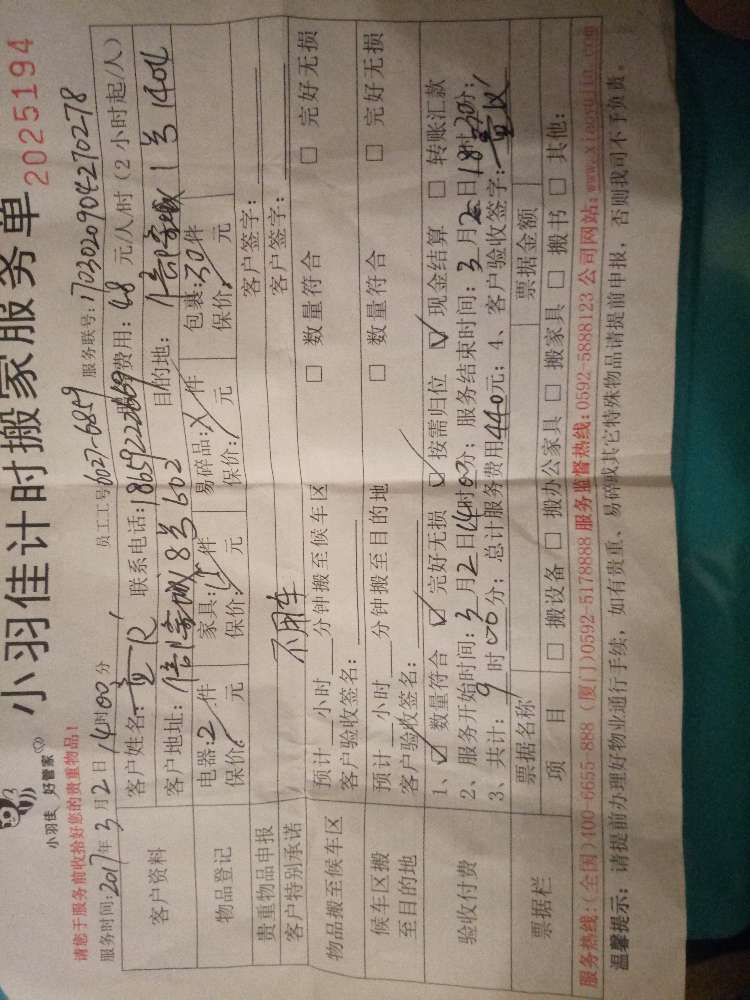 小羽佳计时搬家服务单
小羽佳 好管家
2025194
请您于服务前收拾好您的贵重物品！
服务时间:2017年3月2日14时00分 员工工号6027-6859 服务联号:1703020904270278
客户资料
客户姓名: 联系电话: 服务费用:48元/人/时（2小时起/人）
客户地址: 8号602 目的地: 1号1404
物品登记
电器:2件 家具: 件 易碎品:X件 包裹:30件
保价: 元 保价: 元 保价: 元 保价: 元
贵重物品申报 客户签字:
客户特别承诺 不用车 客户签字:
物品搬至候车区
预计 小时 分钟搬至候车区 □ 数量符合 □ 完好无损
客户验收签名:
候车区搬至目的地
预计 小时 分钟搬至目的地 □ 数量符合 □ 完好无损
客户验收签名:
验收付费
1、☑ 数量符合 ☑ 完好无损 ☑ 按需归位 ☑ 现金结算 □ 转账汇款
2、服务开始时间:3月2日14时00分；服务结束时间:3月2日18时30分；
3、共计:9时00分；总计服务费用440元；4、客户验收签字:
票据栏
票据名称 票据金额
项 目 □ 搬设备 □ 搬办公家具 □ 搬家具 □ 搬书 □ 其他:
服务热线:(全国)400-6655-888 (厦门)0592-5178888 服务监督热线:0592-5888123 公司网站:www.xiaoyujia.com
温馨提示：请提前办理好物业通行手续，如有贵重、易碎或其它特殊物品请提前申报，否则我司不予负责。